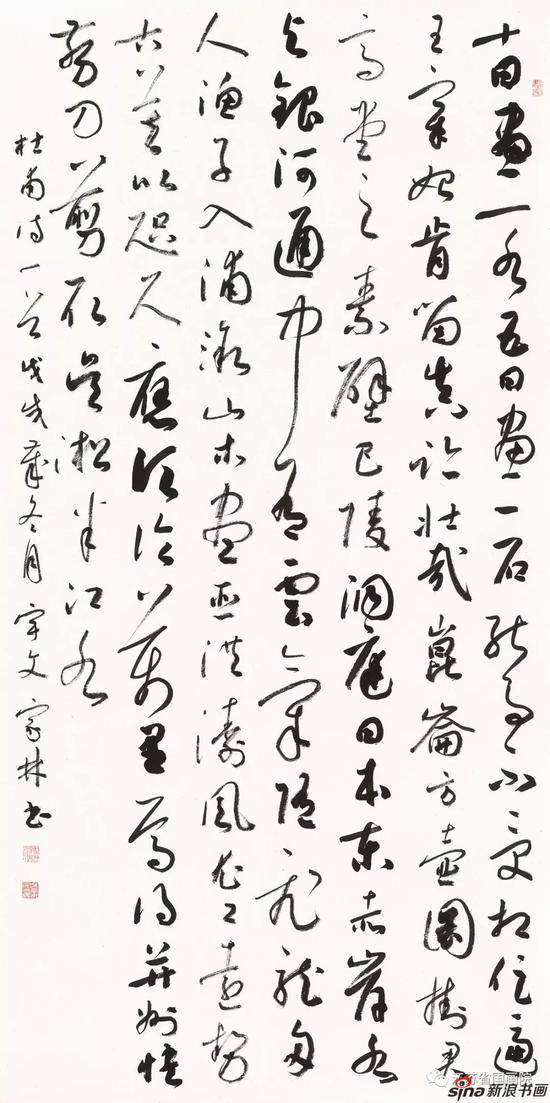 十日畫一水五日畫一石能事不受相促逼
王宰始肯留真跡壯哉崑崙方壺圖掛君
高堂之素壁巴陵洞庭日本東赤岸水
與銀河通中有雲氣隨飛龍舟
人漁子入浦漵山木盡亞洪濤風尤工遠勢
古莫比咫尺應須論萬里焉得并州快
剪刀剪取吳淞半江水
杜甫詩一首戊戌歲冬月宇文家林書
江苏省国画院
sina新浪书画